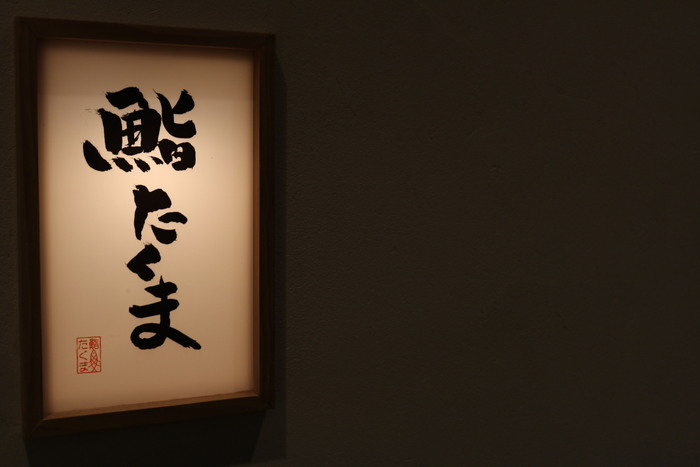 鮨
たくま
鮨
たくま